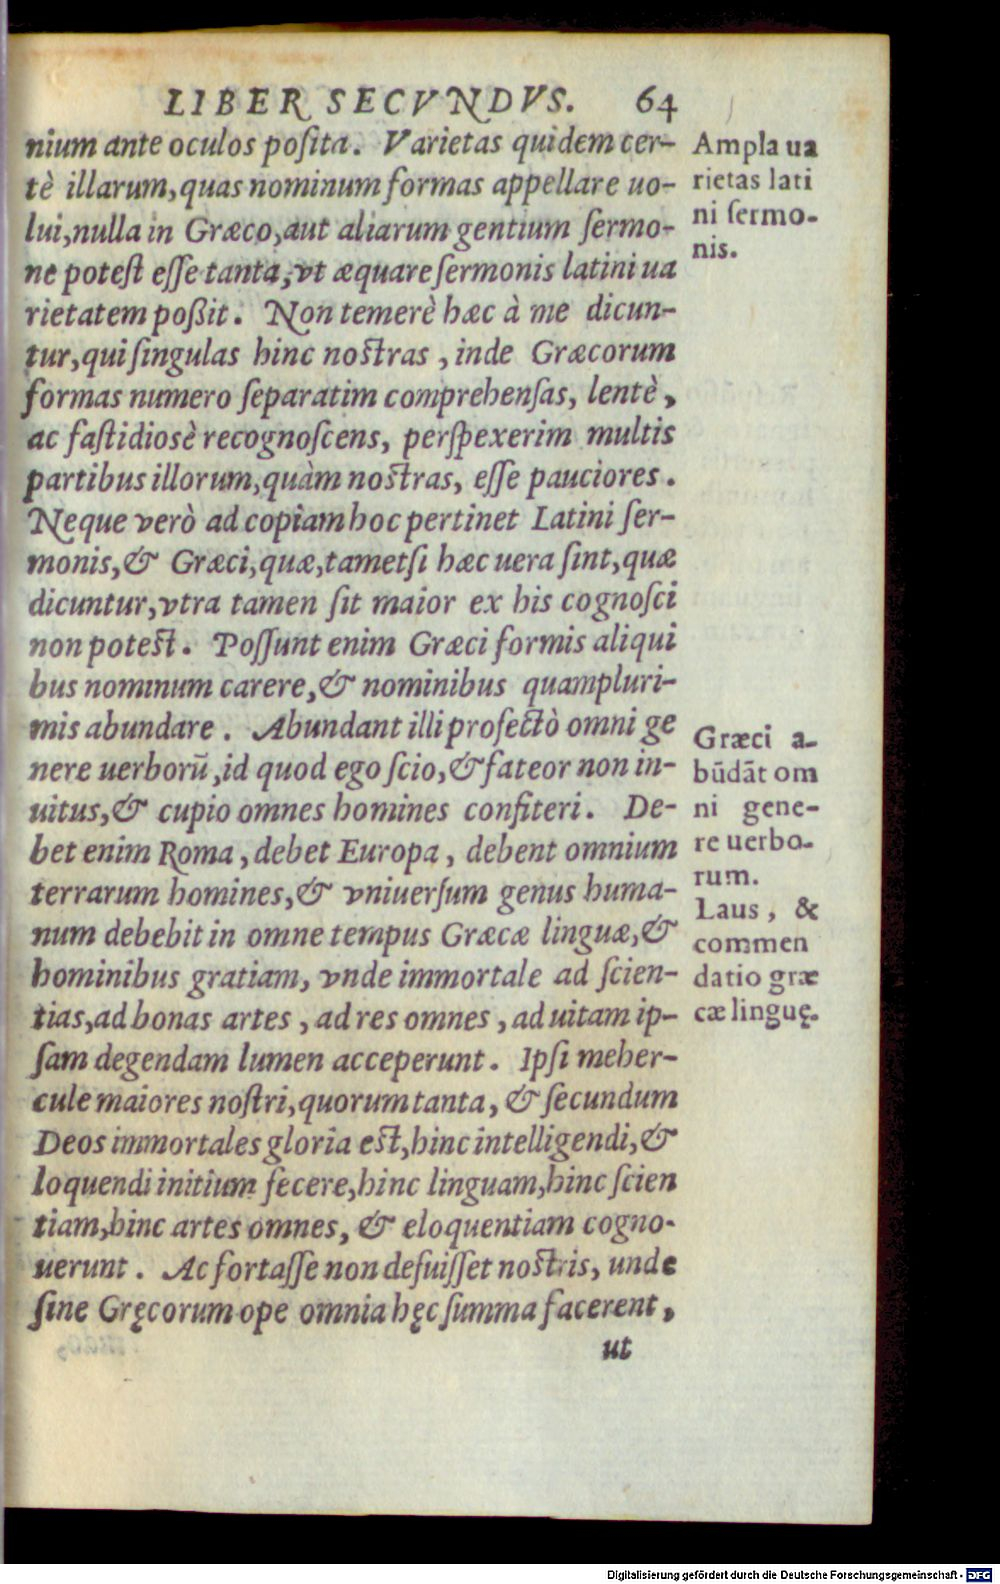 LIBER SECVNDVS. 64
nium ante oculos posita. Varietas quidem cer-
tè illarum, quas nominum formas appellare uo-
lui, nulla in Græco, aut aliarum gentium sermo-
ne potest esse tanta, vt æquare sermonis latini ua
rietatem poßit. Non temerè hæc à me dicun-
tur, qui singulas hinc nostras, inde Græcorum
formas numero separatim comprehensas, lentè,
ac fastidiosè recognoscens, perspexerim multis
partibus illorum, quàm nostras, esse pauciores.
Neque verò ad copiam hoc pertinet Latini ser-
monis, & Græci, quæ, tametsi hæc uera sint, quæ
dicuntur, vtra tamen sit maior ex his cognosci
non potest. Possunt enim Græci formis aliqui
bus nominum carere, & nominibus quampluri-
mis abundare. Abundant illi profectò omni ge
nere uerborū, id quod ego scio, & fateor non in-
uitus, & cupio omnes homines confiteri. De-
bet enim Roma, debet Europa, debent omnium
terrarum homines, & vniuersum genus huma-
num debebit in omne tempus Græcæ linguæ, &
hominibus gratiam, vnde immortale ad scien-
tias, ad bonas artes, ad res omnes, ad uitam ip-
sam degendam lumen acceperunt. Ipsi meher-
cule maiores nostri, quorum tanta, & secundum
Deos immortales gloria est, hinc intelligendi, &
loquendi initium fecere, hinc linguam, hinc scien
tiam, hinc artes omnes, & eloquentiam cogno-
uerunt. Ac fortasse non defuisset nostris, unde
sine Gręcorum ope omnia hęc summa facerent,
ut
Ampla ua
rietas lati
ni sermo-
nis.
Græci a-
būdāt om
ni gene-
re uerbo-
rum.
Laus, &
commen
datio græ
cæ linguę.
Digitalisierung gefördert durch die Deutsche Forschungsgemeinschaft - DFG